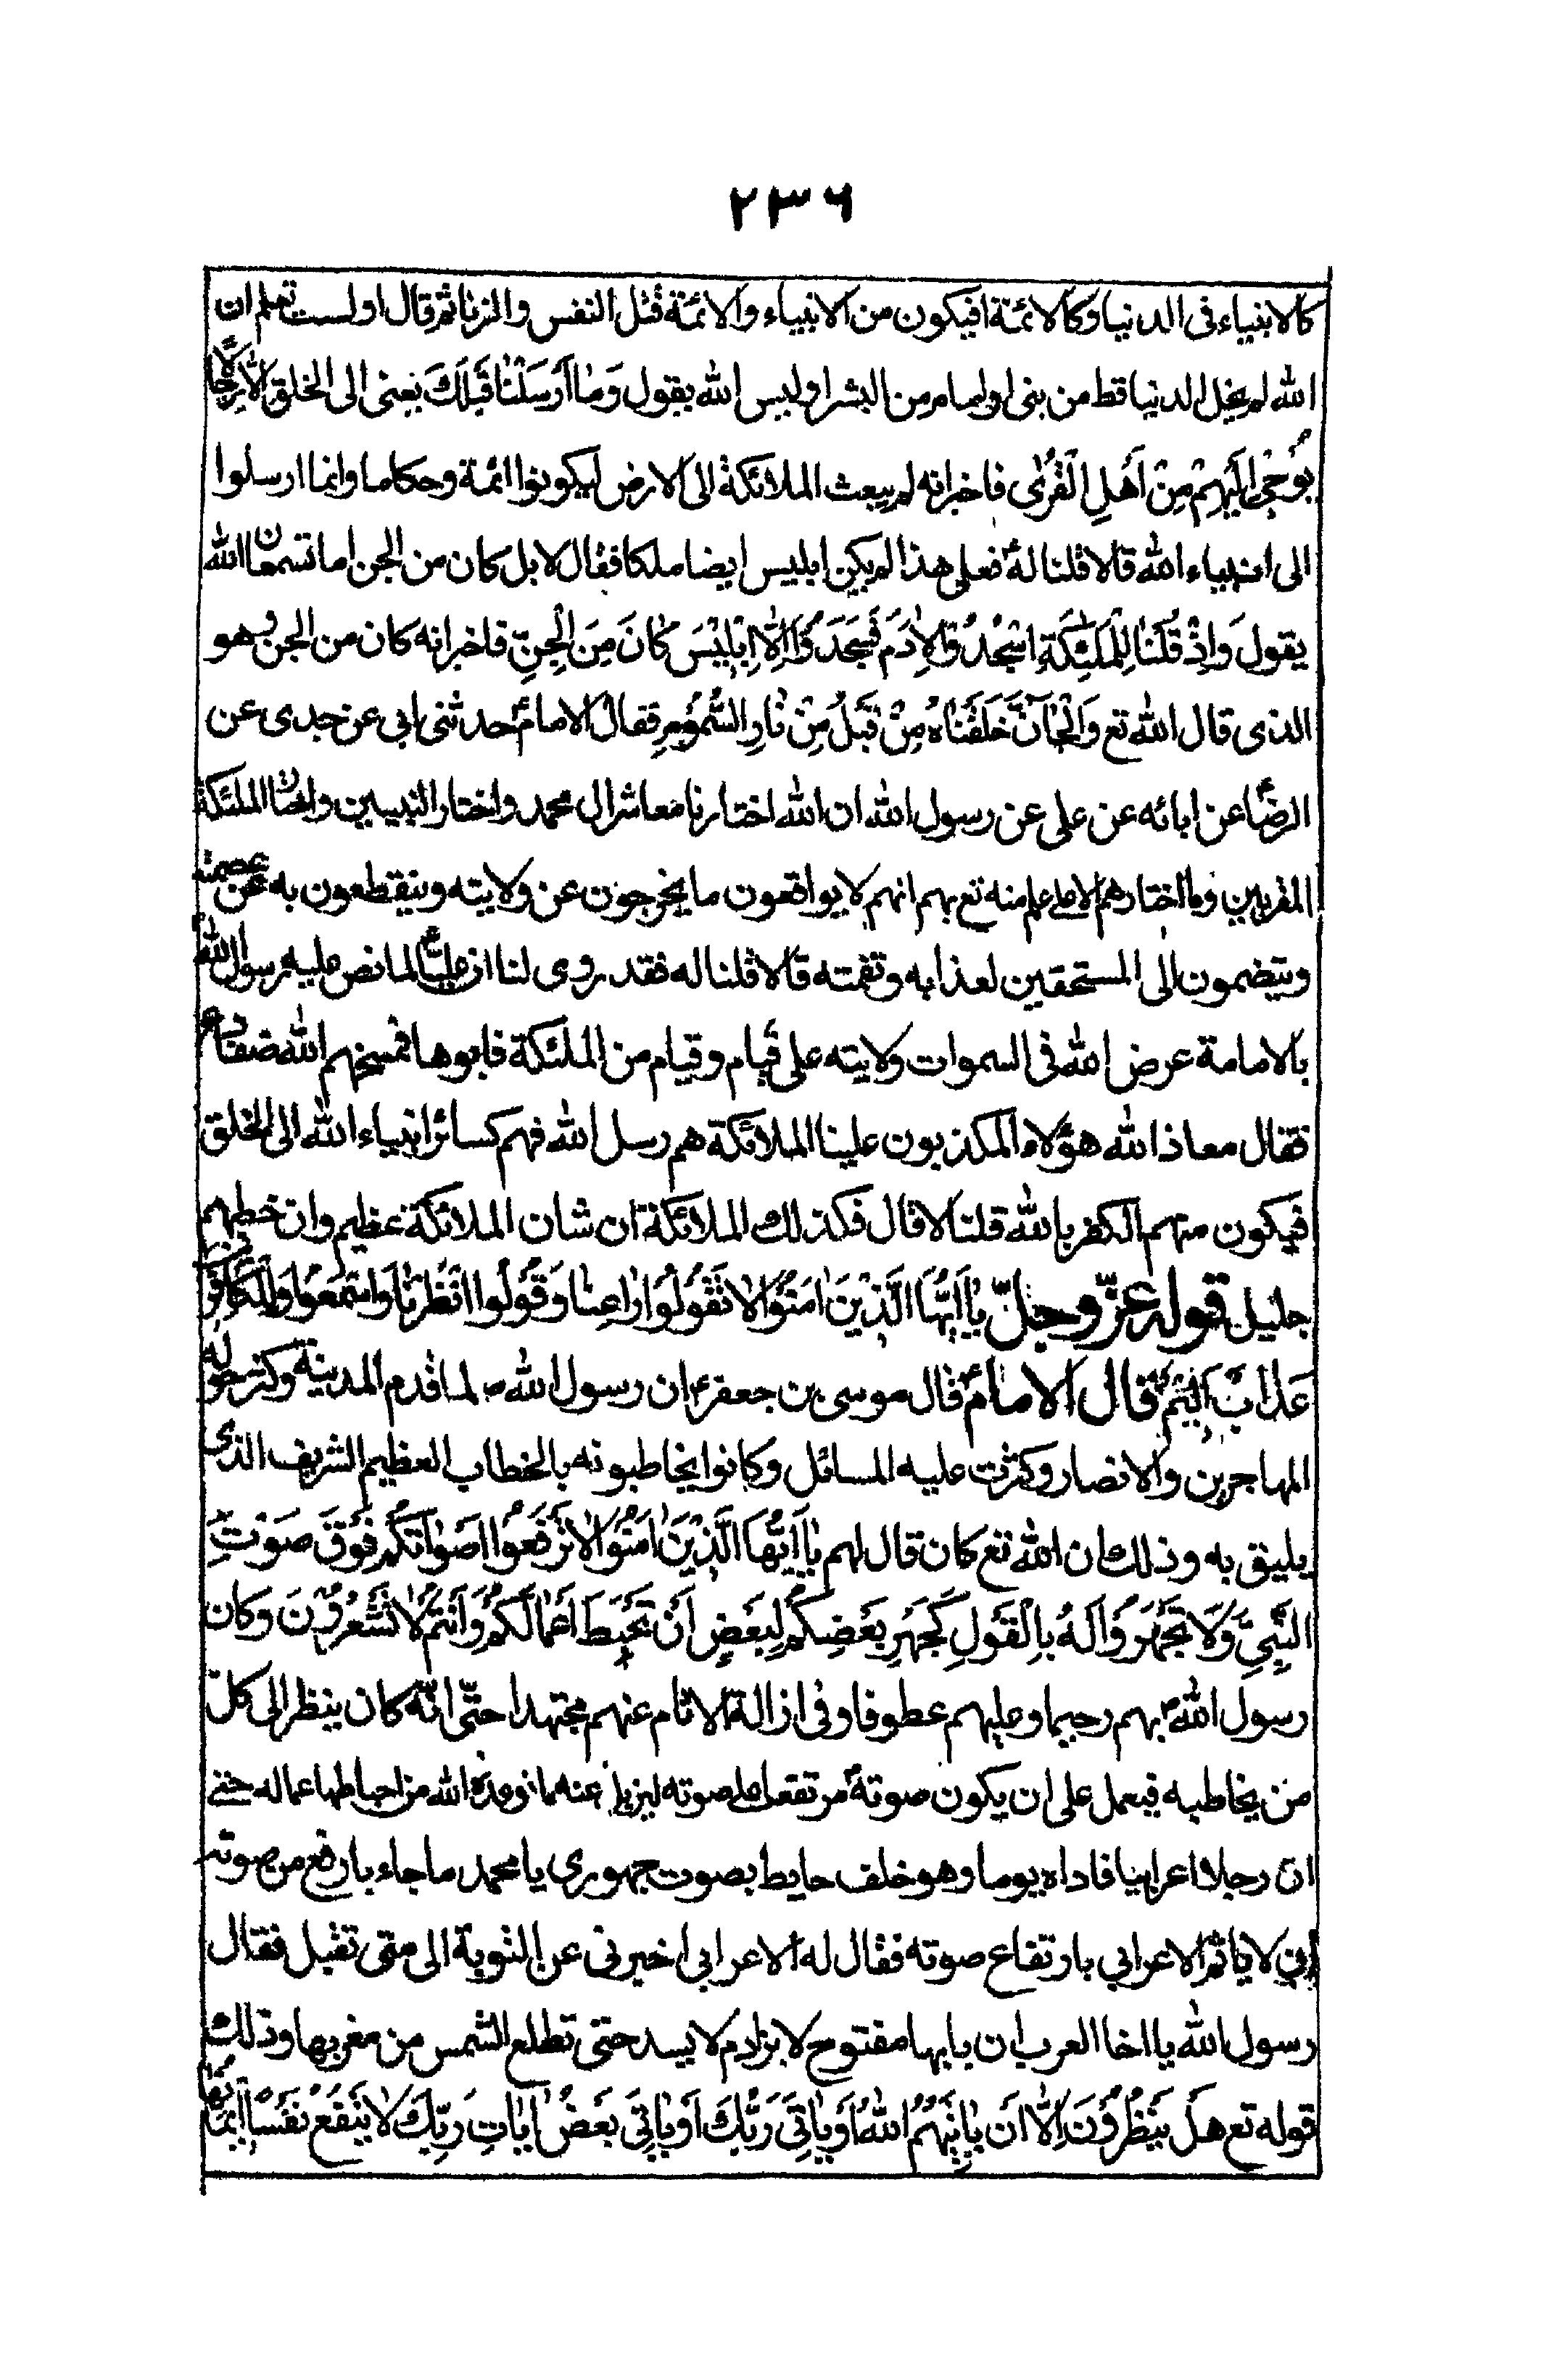 ٢٣٦
كالانبياء فى الدنيا وكالائمة افيكون من الانبياء والائمة قتل النفس والزنا ثم قال اولست تعلم ان
الله لم يخل الدنيا قط من بنى او امام من البشر اوليس الله يقول وَمٰا اَرْسَلْنٰا قَبْلَكَ يعنى الى الخلق اِلّٰا رِجٰالًا
يُوحٰى اِلَيْهِمْ مِنْ اَهْلِ الْقُرٰى فاخبر انه لم يبعث الملائكة الى الارض ليكونوا ائمة وحكاما وانما ارسلوا
الى انبياء الله قالا قلنا له فعلى هذا لم يكن ابليس ايضا ملكا فقال لا بل كان من الجن اما تسمعان الله
يقول وَاِذْ قُلْنٰا لِلْمَلٰئِكَةِ اسْجُدُوا لِاٰدَمَ فَسَجَدُوا اِلّٰا اِبْلِيْسَ كٰانَ مِنَ الْجِنِّ فاخبر انه كان من الجن وهو
الذى قال الله تع وَالْجٰانَّ خَلَقْنٰاهُ مِنْ قَبْلُ مِنْ نٰارِ السَّمُوْمِ فقال الامام ع حدثنى ابى عن جدى عن
الرضا ع عن ابائه عن على عن رسول الله ان الله اختارنا معاشر ال محمد واختار النبيين واختار الملئكة
المقربين وما اختارهم الا على علم منه تع بهم انهم لا يواقعون ما يخرجون عن ولايته وينقطعون به عن عصمته
ويتضمون الى المستحقين لعذابه ونقمته قالا قلنا له فقد روى لنا ان عليا ع لما نص عليه رسول الله
بالامامة عرض الله فى السموات ولايته على فيام وفيام من الملئكة فابوها فمسخهم الله ضفادع
فقال معاذ الله هؤلاء المكذبون علينا الملائكة هم رسل الله فهم كسائر انبياء الله الى الخلق
فيكون منهم الكفر بالله قلنا لا قال فكذلك الملائكة ان شان الملائكة عظيم وان خطبهم
جليل قوله عزّ وجلّ يٰا اَيُّهَا الَّذِيْنَ اٰمَنُوا لٰا تَقُوْلُوا رٰاعِنٰا وَقُوْلُوا انْظُرْنٰا وَاسْمَعُوا وَلِلْكٰافِرِيْنَ
عَذٰابٌ اَلِيْمٌ قال الامام ع قال موسى بن جعفر ع ان رسول الله ص لما قدم المدينة وكثر حوله
المهاجرين والانصار وكثرت عليه المسائل وكانوا يخاطبونه بالخطاب العظيم الشريف الذى
يليق به وذلك ان الله تع كان قال لهم يٰا اَيُّهَا الَّذِيْنَ اٰمَنُوا لٰا تَرْفَعُوا اَصْوٰاتَكُمْ فَوْقَ صَوْتِ
النَّبِىِّ وَلَا تَجْهَرُوا لَهُ بِالْقَوْلِ كَجَهْرِ بَعْضِكُمْ لِبَعْضٍ اَنْ تَحْبَطَ اَعْمٰالُكُمْ وَاَنْتُمْ لٰا تَشْعُرُوْنَ وكان
رسول الله ص بهم رحيما وعليهم عطوفا وفى ازالة الاثام عنهم مجتهدا حتّى انّه كان ينظر الى كلّ
من يخاطبه فيعمل على ان يكون صوته ص مرتفعا على صوته ليزيل عنه ما توعده الله من احباط اعماله حتى
ان رجلا اعرابيا ناداه يوما وهو خلف حايط بصوت جهورى يا محمد ص فاجابه بارفع من صوته
لا ياثم الاعرابي بارتفاع صوته فقال له الاعرابى اخبرنى عن التوبة الى متى تقبل فقال
رسول الله يا اخا العرب ان بابها مفتوح لابن ادم لا يسد حتى تطلع الشمس من مغربها وذلك
قوله تع هَلْ يَنْظُرُوْنَ اِلّٰا اَنْ يٰاتِيَهُمُ اللهُ اَوْ يٰاتِىَ رَبُّكَ اَوْ يٰاتِىَ بَعْضُ اٰيٰاتِ رَبِّكَ لٰا يَنْفَعُ نَفْسًا اِيْمٰانُهٰا